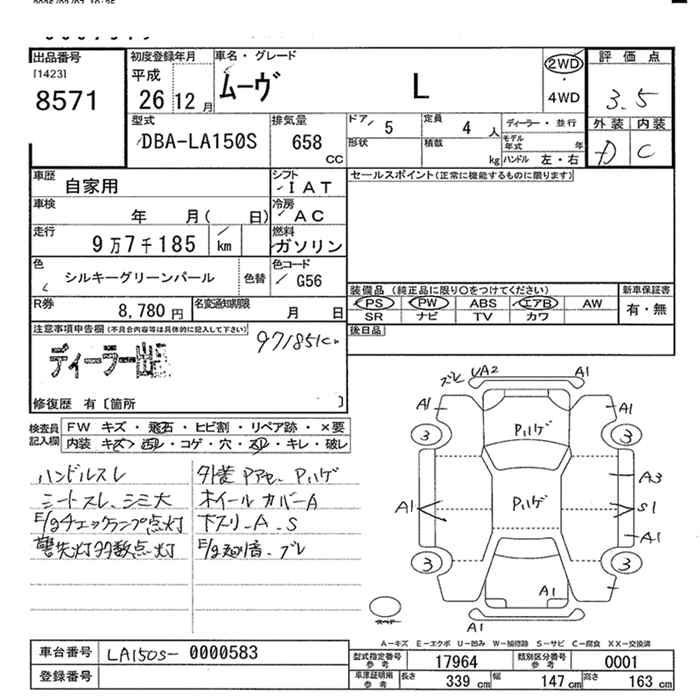 出品番号
[1423]
8571
初度登録年月
平成
26年 12月
車名・グレード
ムーヴ L
2WD
・
4WD
評価点
3.5
外装 内装
D C
型式
DBA-LA150S
排気量
658
CC
ドア 5
形状
定員 4 人
積載 kg
ディーラー・並行
モデル年式 年
ハンドル 左・右
車歴 自家用
シフト IAT
車検 年 月( 日)
冷房 AC
走行 9万7千185 km
燃料 ガソリン
色 シルキーグリーンパール
色替
色コード G56
R券 8,780 円
名変通知期限 月 日
セールスポイント(正常に機能するものに限ります)
装備品 (純正品に限り○をつけてください)
PS PW ABS エアB AW
SR ナビ TV カワ
新車保証書
有・無
後日品
注意事項申告欄(不具合内容等は具体的に記入して下さい)
ディーラー出
97185K
修復歴 有〔箇所 〕
検査員
記入欄
FW キズ・飛石・ヒビ割・リペア跡・×要
内装 キズ・凹・コゲ・穴・スレ・キレ・破レ
ハンドルスレ
シートスレ、シミ大
E/gチェックランプ点灯
警告灯多数点灯
外装 Pアセ、Pハゲ
ホイールカバーA
下スリ、A、S
E/g 異音、ブレ
ズレ UA2 A1
A1 A1
3 3
Pハゲ
Pハゲ
A1
A3
S1
A1
3 3
A1
A1
スペア
A-キズ E-エクボ U-凹み W-補修跡 S-サビ C-腐食 XX-交換済
車台番号 LA150S-0000583
登録番号
型式指定番号
参考 17964
類別区分番号
参考 0001
車庫証明用
参考
長さ 339 cm
幅 147 cm
高さ 163 cm